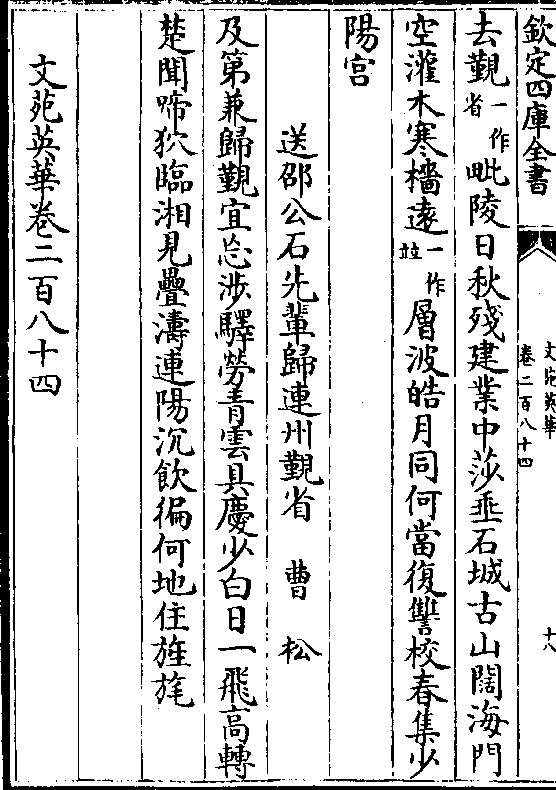 欽定四庫全書
文苑英華
卷二百八十四
十八
去覲一作省毗陵日秋殘建業中莎垂石城古山闊海門
空灌木寒檣遠一作並層波皓月同何當復讐校春集少
陽宫
送邵公石先輩歸連州覲省 曹松
及第兼歸覲宜忘涉驛勞青雲具慶少白日一飛高轉
楚聞啼狖臨湘見疊濤連陽沉飲徧何地住旌旄
文苑英華卷二百八十四